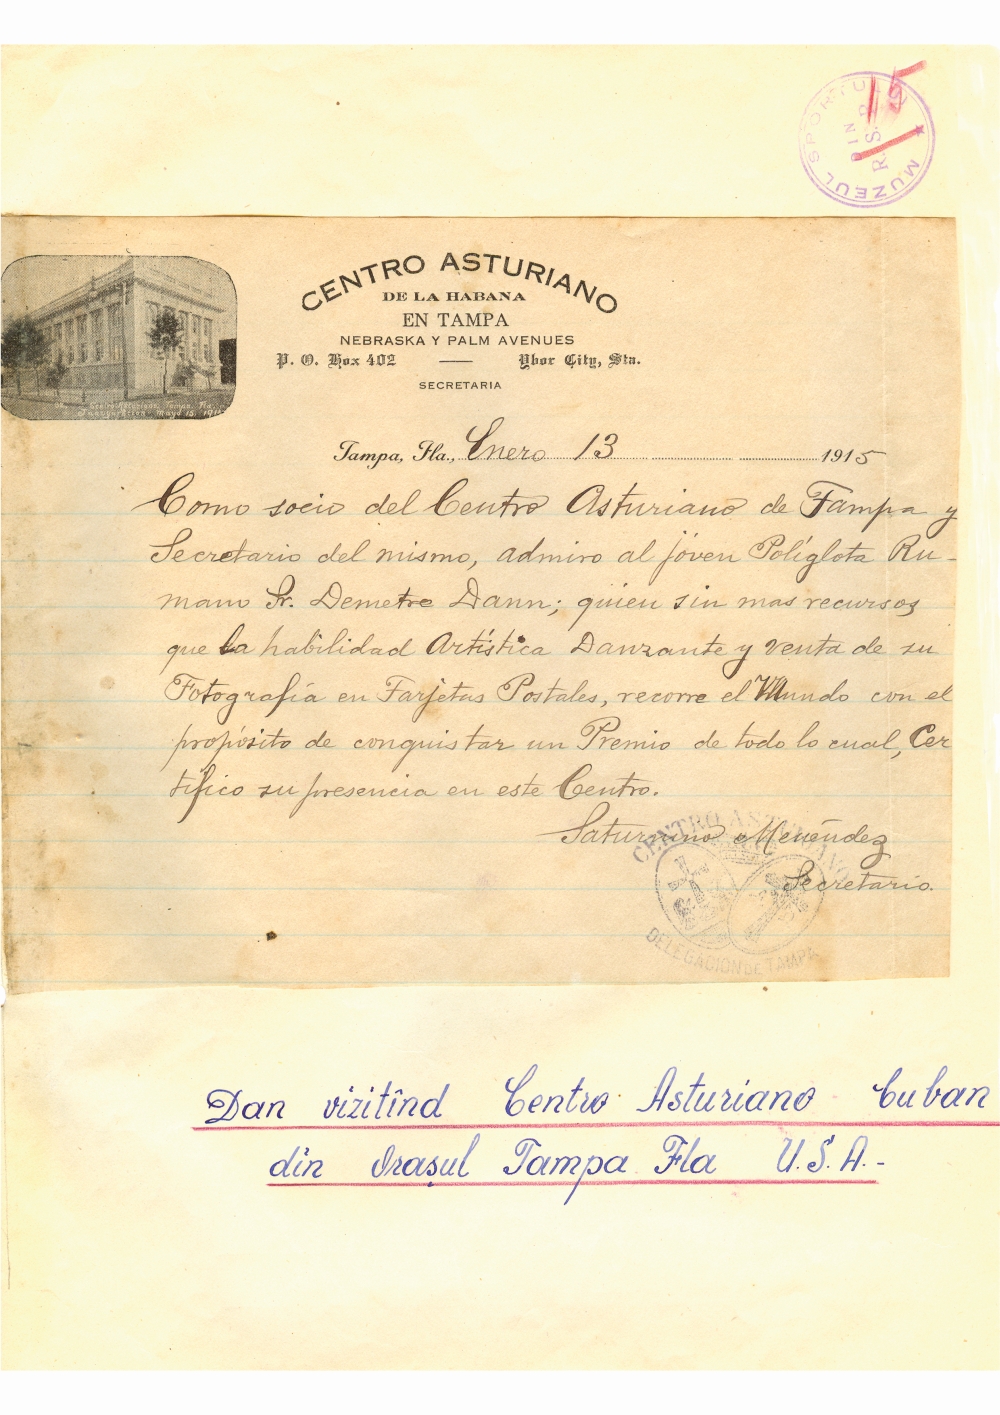 MUZEUL SPORTULUI
DIN
R.S.R.
CENTRO ASTURIANO
DE LA HABANA
EN TAMPA
NEBRASKA Y PALM AVENUES
P. O. Box 402 — Ybor City, Sta.
SECRETARIA
Centro Asturiano, Tampa, Fla.
Inauguracion Mayo 15, 191
Tampa, Fla., Enero 13 1915
Como socio del Centro Asturiano de Tampa y
Secretario del mismo, admiro al jóven Políglota Ru-
mano Sr. Demetre Dann; quien sin mas recursos
que la habilidad Artística Danzante y venta de su
Fotografía en Tarjetas Postales, recorre el Mundo con el
propósito de conquistar un Premio de todo lo cual, Cer
tifico su presencia en este Centro.
Saturnino Menéndez
Secretario.
CENTRO ASTURIANO
DELEGACION DE TAMPA
Dan vizitînd Centro Asturiano Cuban
din orașul Tampa Fla U.S.A.-